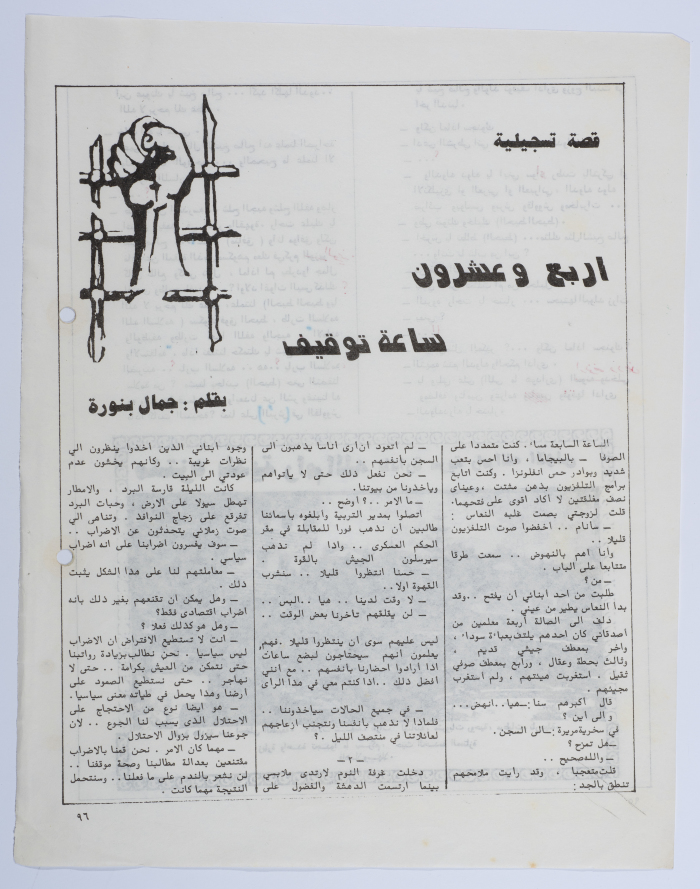 قصة تسجيلية
اربع وعشرون
ساعة توقيف
بقلم : جمال بنورة
الساعة السابعة مساء . كنت متمددا على
الصوفا ــ بالبيجاما ، وأنا احس بتعب
شديد وبوادر حمى انفلونزا . وكنت اتابع
برامج التلفزيون بذهن مشتت ، وعيناي
نصف مغلقتين لا أكاد اقوى على فتحهما.
قلت لزوجتي بصمت غلبه النعاس :
ــ سأنام .. اخفضوا صوت التلفزيون
قليلا ..
وأنا اهم بالنهوض .. سمعت طرقا
متتابعا على الباب .
ــ من ؟
طلبت من احد ابنائي ان يفتح ..وقد
بدأ النعاس يطير من عيني .
دلف الى الصالة أربعة معلمين من
اصدقائي كان احدهم يلتف بعباءة سوداء ،
واخر بمعطف جيشي قديم .
وثالث بحطة وعقال ، ورابع بمعطف صوفي
ثقيل . استغربت هيئتهم ، ولم استغرب
مجيئهم .
قال أكبرهم سنا :ــهيا..انهض...
ــ والى أين ؟
في سخرية مريرة :ــالى السجن .
ــهل تمزح ؟
ــ والله صحيح ..
قلت متعجبا ، وقد رأيت ملامحهم
تنطق بالجد :
ــ لم اتعود ان ارى أناسا يذهبون الى
السجن بأنفسهم ..
ــ نحن نفعل ذلك حتى لا يأتواهم
ويأخذونا من بيوتنا .
ــ ما الامر ..؟ أوضح ..
اتصلوا بمدير التربية وأبلغوه بأسمائنا
طالبين ان نذهب فورا للمقابلة في مقر
الحكم العسكري .. واذا لم نذهب
سيرسلون الجيش بالقوة .
ــ حسنا انتظروا قليلا .. سنشرب
القهوة اولا ..
ــ لا وقت لدينا .. هيا ..البس ..
ــ لن يقلقهم تأخرنا بعض الوقت ..
ليس عليهم سوى ان ينتظروا قليلا .فهم
يعلمون انهم سيحتاجون لبضع ساعات
اذا ارادوا احضارنا بأنفسهم .. مع انني
افضل ذلك ..اذا كنتم معي في هذا الرأى
ــ في جميع الحالات سيأخذوننا ..
فلماذا لا نذهب بأنفسنا ونتجنب ازعاجهم
لعائلاتنا في منتصف الليل . ؟
ــ ٢ ــ
دخلت غرفة النوم لارتدى ملابسي
بينما ارتسمت الدهشة والفضول على
وجوه ابنائي الذين اخذوا ينظرون الي
نظرات غريبة .. وكأنهم يخشون عدم
عودتي الى البيت .
كانت الليلة قارسة البرد ، والامطار
تهطل سيولا على الارض ، وحبات البرد
تقرقع على زجاج النوافذ . وتناهى الي
صوت زملائي يتحدثون عن الاضراب ..
ــ سوف يفسرون اضرابنا على انه اضراب
سياسي .
ــ معاملتهم لنا على هذا الشكل يثبت
ذلك .
ــ وهل يمكن ان تقنعهم بغير ذلك بأنه
اضراب اقتصادى فقط؟
ــ وهل هو كذلك فعلا ؟
ــ انت لا تستطيع الافتراض ان الاضراب
ليس سياسيا . نحن نطالب بزيادة رواتبنا
حتى نتمكن من العيش بكرامة .. حتى لا
نهاجر .. حتى نستطيع الصمود على
أرضنا وهذا يحمل في طياته معنى سياسيا .
ــ هو ايضا نوع من الاحتجاج على
الاحتلال الذي يسبب لنا الجوع .. لان
جوعنا سيزول بزوال الاحتلال .
ــ مهما كان الامر . نحن قمنا بالاضراب
مقتنعين بعدالة مطالبنا وصحة موقفنا ..
لن نشعر بالندم على ما فعلنا.. وسنتحمل
النتيجة مهما كانت .
٩٦